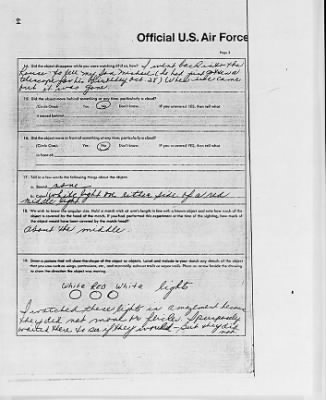 Official U.S. Air Force
Page 3
14. Did the object disappear while you were watching it? If so, how? I went back into the
house to tell my son Michael (he had just gotten a
telescope for his birthday Oct. 28) When we came
out it was gone.
15. Did the object move behind something at any time, particularly a cloud?
(Circle One): Yes No Don't Know. If you answered YES, then tell what
it moved behind:
16. Did the object move in front of something at any time, particularly a cloud?
(Circle One): Yes No Don't Know. If you answered YES, then tell what
in front of:
17. Tell in a few words the following things about the object:
a. Sound none
b. Color white light on either side of a red
middle light
18. We wish to know the angular size. Hold a match stick at arm's length in line with a known object and note how much of the
object is covered by the head of the match. If you had performed this experiment at the time of the sighting, how much of
the object would have been covered by the match head?
about the middle
19. Draw a picture that will show the shape of the object or objects. Label and include in your sketch any details of the object
that you saw such as wings, protrusions, etc., and especially exhaust trails or vapor trails. Place an arrow beside the drawing
to show the direction the object was moving.
White Red White lights
I watched these lights in amazement because
they did not move or flicker. I purposely
waited there to see if they would - but they did
not.